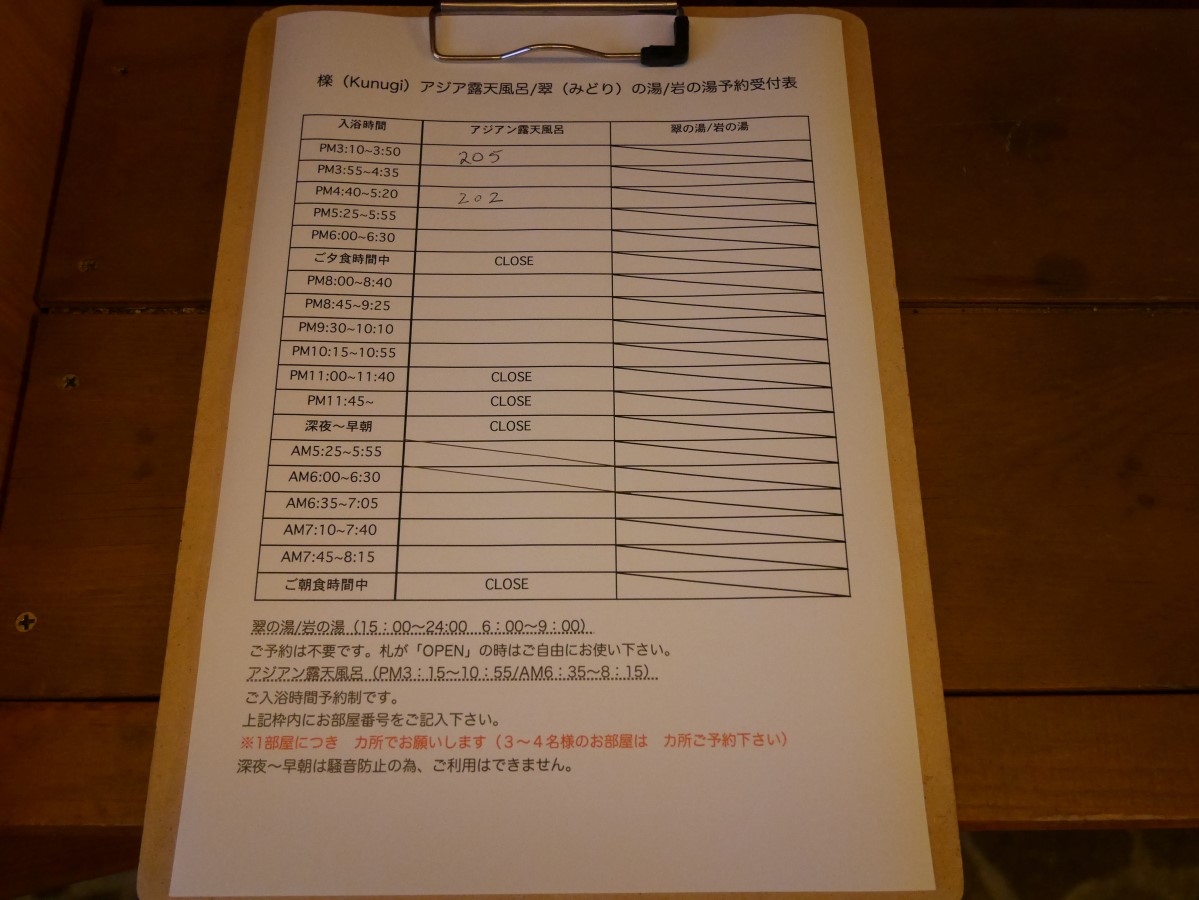 櫟（Kunugi）アジア露天風呂/翠（みどり）の湯/岩の湯予約受付表
入浴時間 アジアン露天風呂 翠の湯/岩の湯
PM3:10~3:50 205
PM3:55~4:35
PM4:40~5:20 202
PM5:25~5:55
PM6:00~6:30
ご夕食時間中 CLOSE
PM8:00~8:40
PM8:45~9:25
PM9:30~10:10
PM10:15~10:55
PM11:00~11:40 CLOSE
PM11:45~ CLOSE
深夜～早朝 CLOSE
AM5:25~5:55
AM6:00~6:30
AM6:35~7:05
AM7:10~7:40
AM7:45~8:15
ご朝食時間中 CLOSE
翠の湯/岩の湯（15：00～24:00　6：00～9：00）
ご予約は不要です。札が「OPEN」の時はご自由にお使い下さい。
アジアン露天風呂（PM3：15～10：55/AM6：35～8：15）
ご入浴時間予約制です。
上記枠内にお部屋番号をご記入下さい。
※1部屋につき　カ所でお願いします（３～４名様のお部屋は　カ所ご予約下さい）
深夜～早朝は騒音防止の為、ご利用はできません。